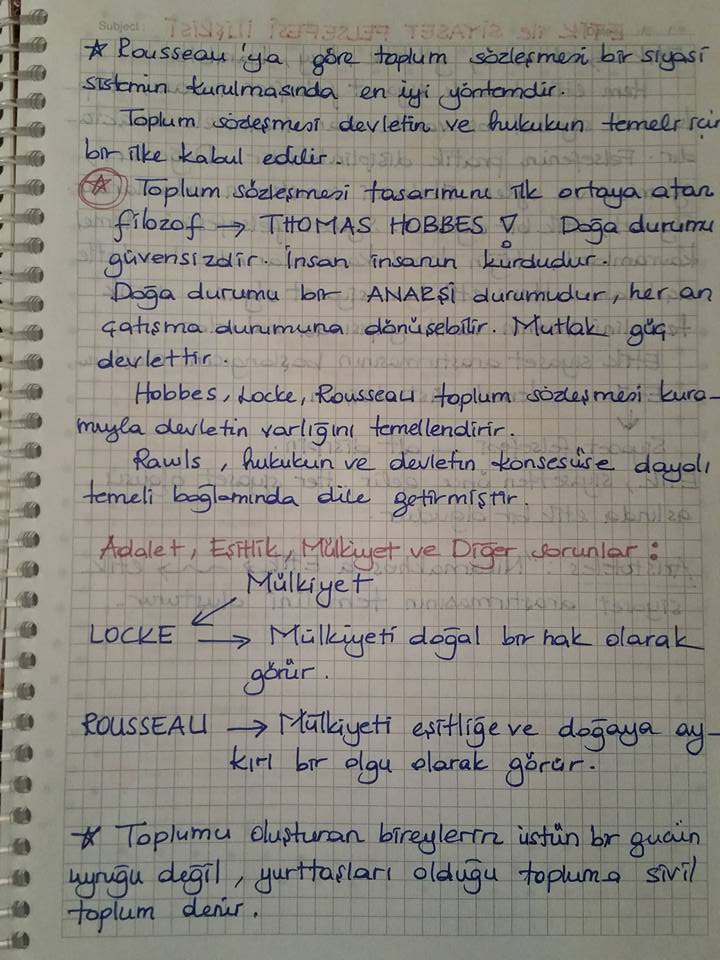 Subject
☆ Rousseau'ya göre toplum sözleşmesi bir siyasi
sistemin kurulmasında en iyi yöntemdir.
Toplum sözleşmesi devletin ve hukukun temeli için
bir ilke kabul edilir.
☆ Toplum sözleşmesi tasarımını ilk ortaya atan
filozof → THOMAS HOBBES ! Doğa durumu
güvensizdir. İnsan insanın kurdudur.
Doğa durumu bir ANARŞİ durumudur, her an
çatışma durumuna dönüşebilir. Mutlak güç
devlettir.
Hobbes, Locke, Rousseau toplum sözleşmesi kura-
mıyla devletin varlığını temellendirir.
Rawls, hukukun ve devletin konsesüse dayalı
temeli bağlamında dile getirmiştir.
Adalet, Eşitlik, Mülkiyet ve Diğer sorunlar :
Mülkiyet
LOCKE → Mülkiyeti doğal bir hak olarak
görür.
ROUSSEAU → Mülkiyeti eşitliğe ve doğaya ay-
kırı bir olgu olarak görür.
☆ Toplumu oluşturan bireylerin üstün bir gücün
uyruğu değil, yurttaşları olduğu topluma sivil
toplum denir.